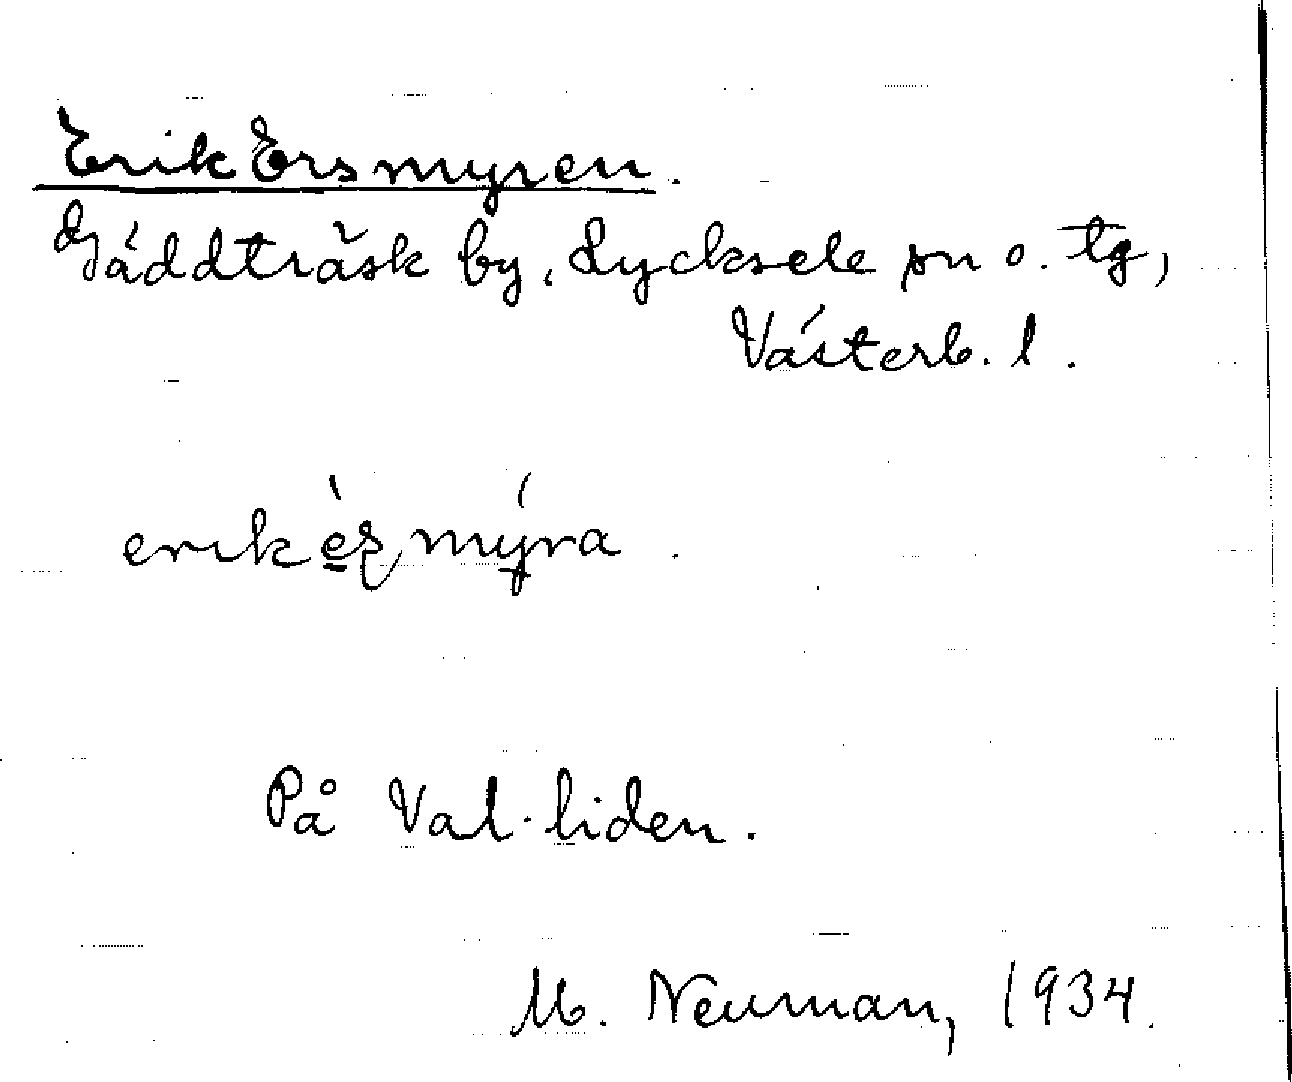 Erik Ersmyren.
Gäddträsk by, Lycksele sn o. tg,
Västerb. l.
erik èş mýra.
På Val-liden.
M. Neuman, 1934.